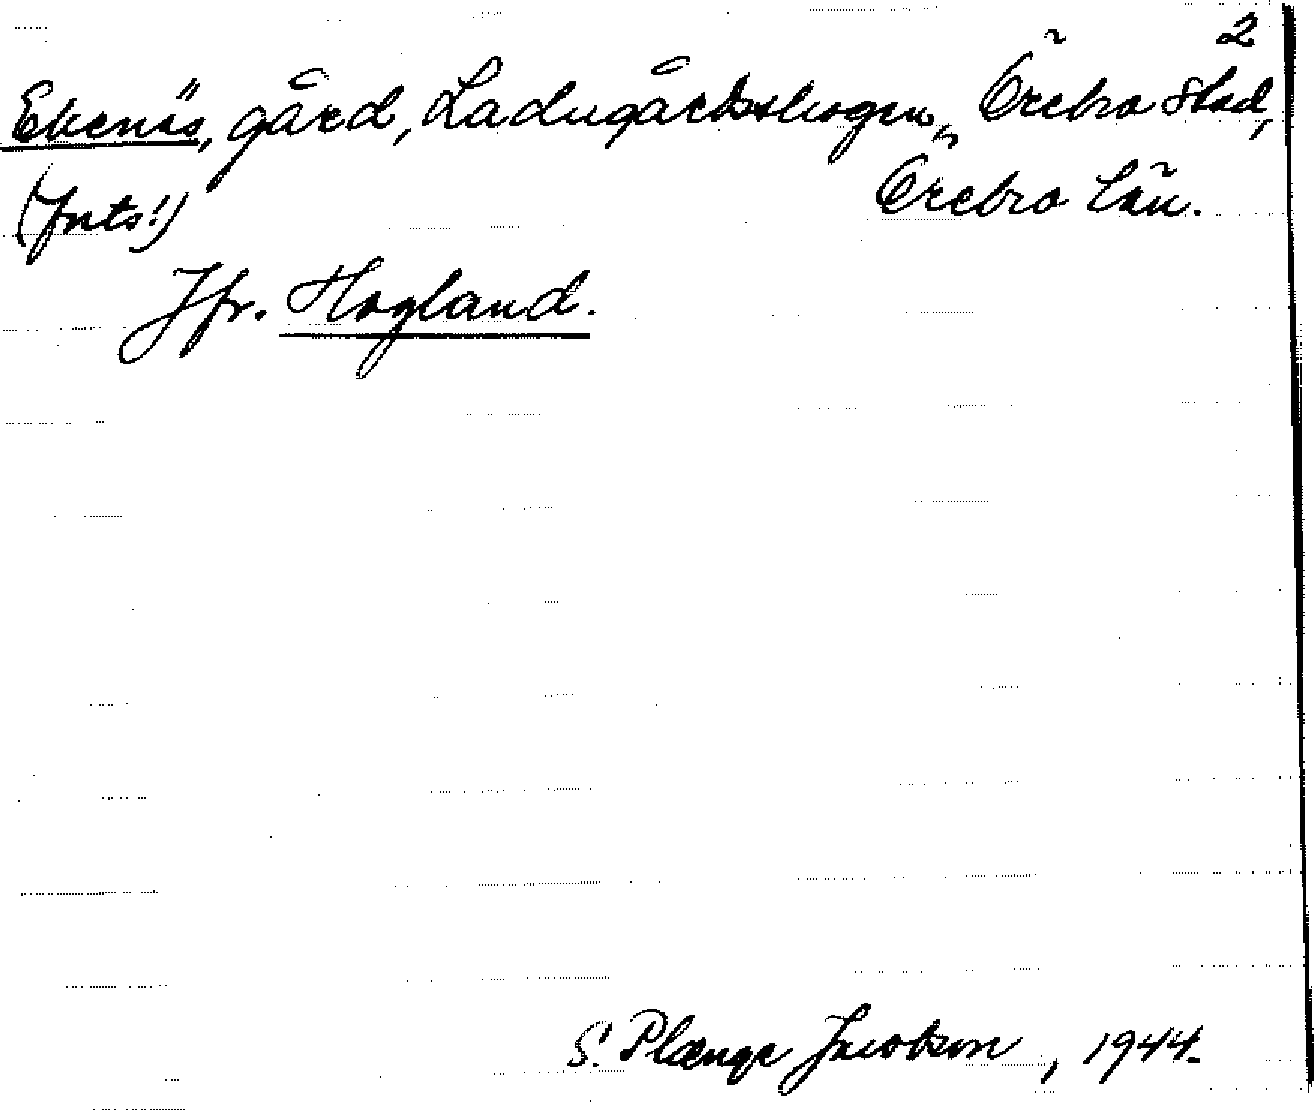 2
Ekenäs, gård, Ladugårdsskogen, Örebro stad,
(forts!) Örebro län.
Jfr. Hagland.
S. Plænge Jacobson, 1944.